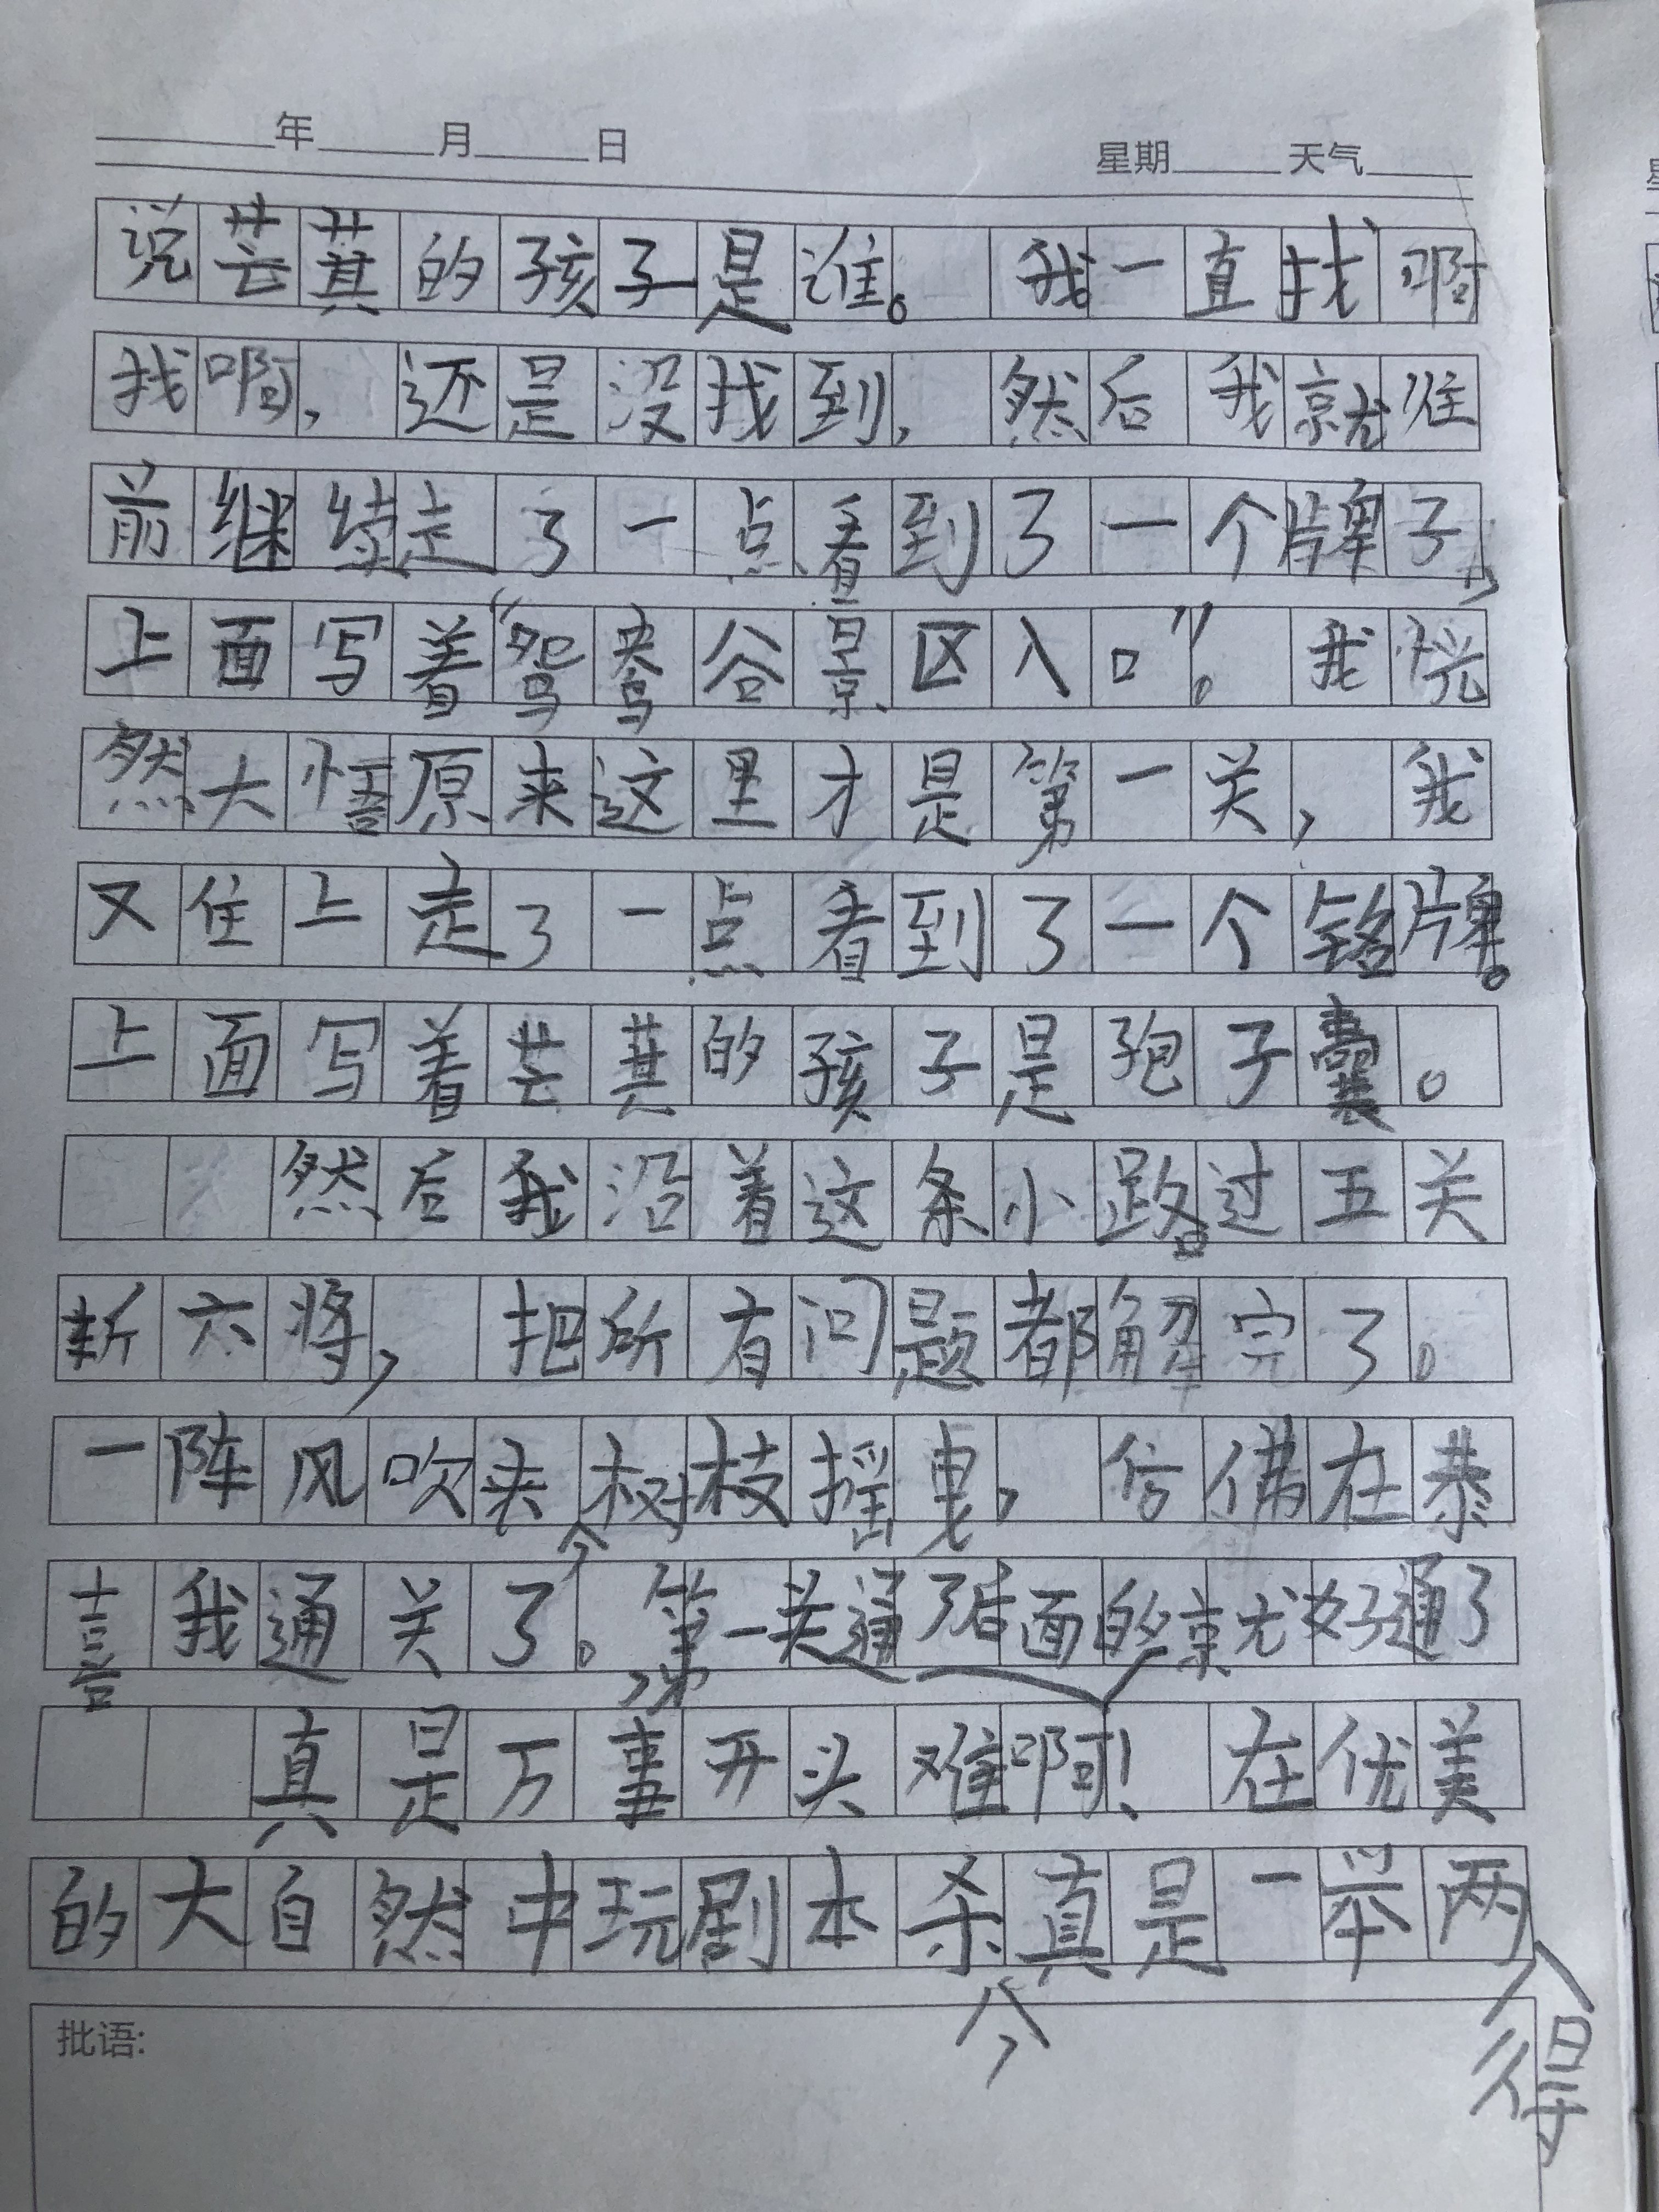 年 月 日 星期 天气
说芸萁的孩子是谁。我一直找啊
找啊，还是没找到，然后我就往
前继续走了一点看到了一个牌子，
上面写着“鸳鸯谷景区入口”。我恍
然大悟原来这里才是第一关，我
又住上走了一点看到了一个铭牌。
上面写着芸萁的孩子是孢子囊。
然后我沿着这条小路。过五关
斩六将，把所有问题都解完了。
一阵风吹来，树枝摇曳，仿佛在恭
喜我通关了。第一关通了，后面的就好通了
真是万事开头难啊！在优美
的大自然中玩剧本杀，真是一举两得
批语：